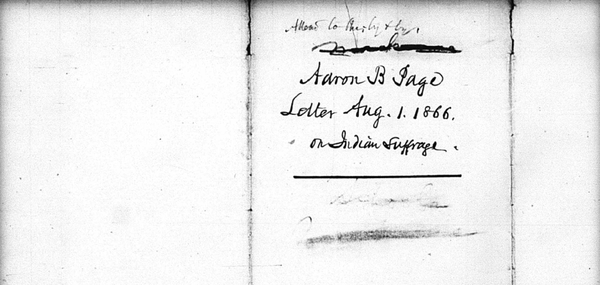 Attend to
Aaron B Page
Letter Aug. 1. 1866.
on Indian Suffrage.